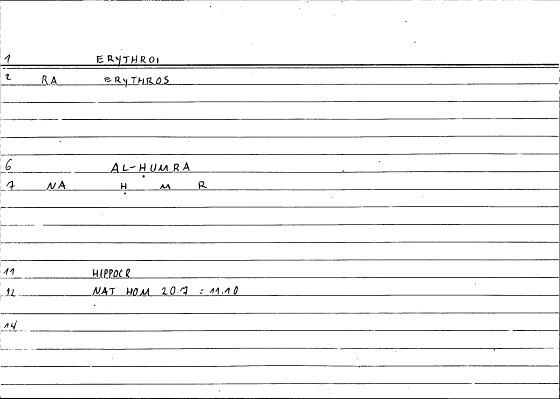 1 ERYTHROI
2 RA ERYTHROS
6 AL-ḤUMRA
7 NA Ḥ M R
11 HIPPOCR
12 NAT HOM 20.7 : 11.10
14